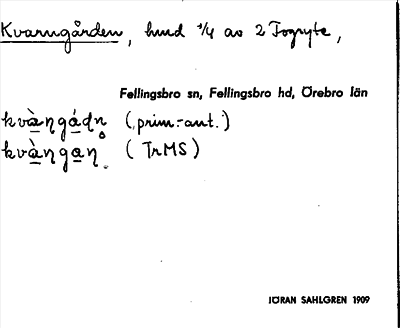 Kvarngården, hmd 1/4 av 2 Fogryte,
Fellingsbro sn, Fellingsbro hd, Örebro län
kvàngádn̥ (prim.-ant.)
kvàngaŋ (TrMS)
JÖRAN SAHLGREN 1909